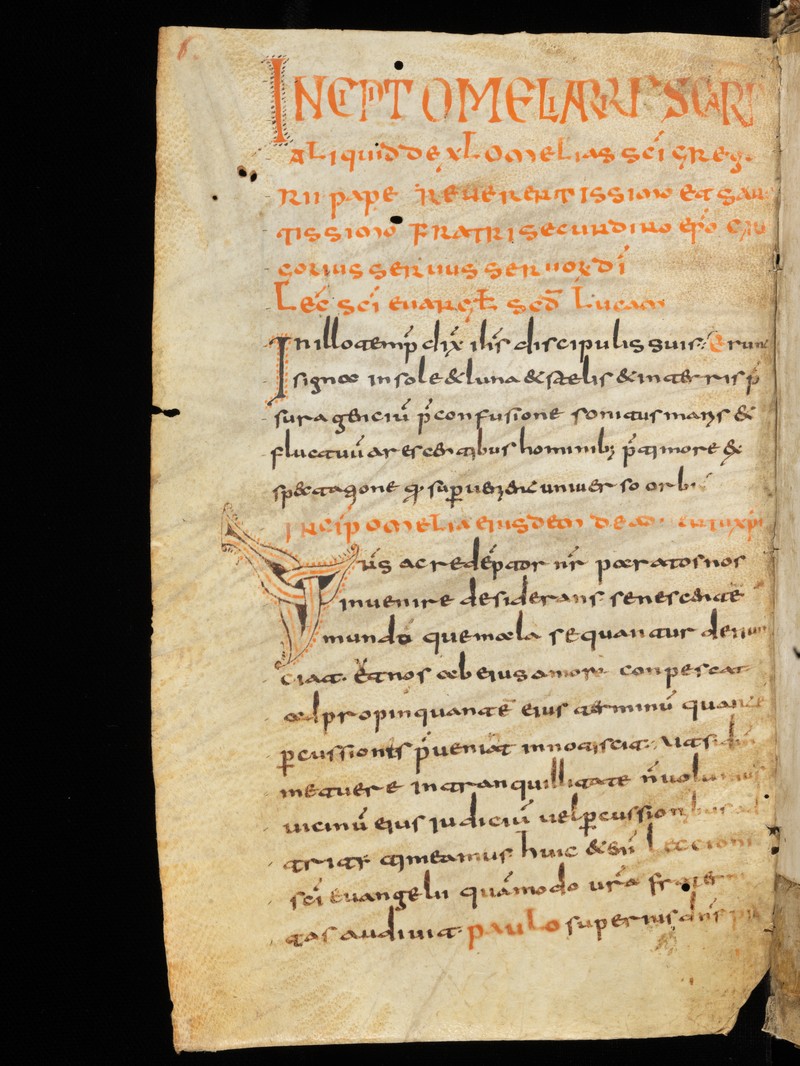 INCIPT OMELIARV̄ SCARV̄
aliquid de xl omelias sc̄i greg
rii pape reverentissimo et san
tissimo fratri secundino ep̄o gre
gorius servus servor̄ d̄i
Lec̄ sc̄i euangł secd̄ Lucam
In illo temp̄ dix̄ ih̄s discipulis suis: Erunt
signa in sole & luna & stellis & in terris p̄
sura genciū p̄ confusione sonitus maris &
fluctuū arescentibus hominib; p̄ timore &
spectatione q, superuenient uniuerso orbi
INCIP̄ omelia eiusdem de
D n̄s ac redēptor n̄r paratos nos
inuenire desiderans senescentē
mundū que mala sequantur denun
ciat. Et nos ab eius amore conpescat
adpropinquantē eius terminū quante
percussionis p̄ueniāt innotiscit. Ut si dn̄
metuere in tranquillitate n̄ uolumus
uicinū eius iudiciū uel percussionibus ad
triti timeamus huic &enī leccioni
sc̄i euangelii quāmodo ur̄a frater
tas audiuit paulo superius dn̄s